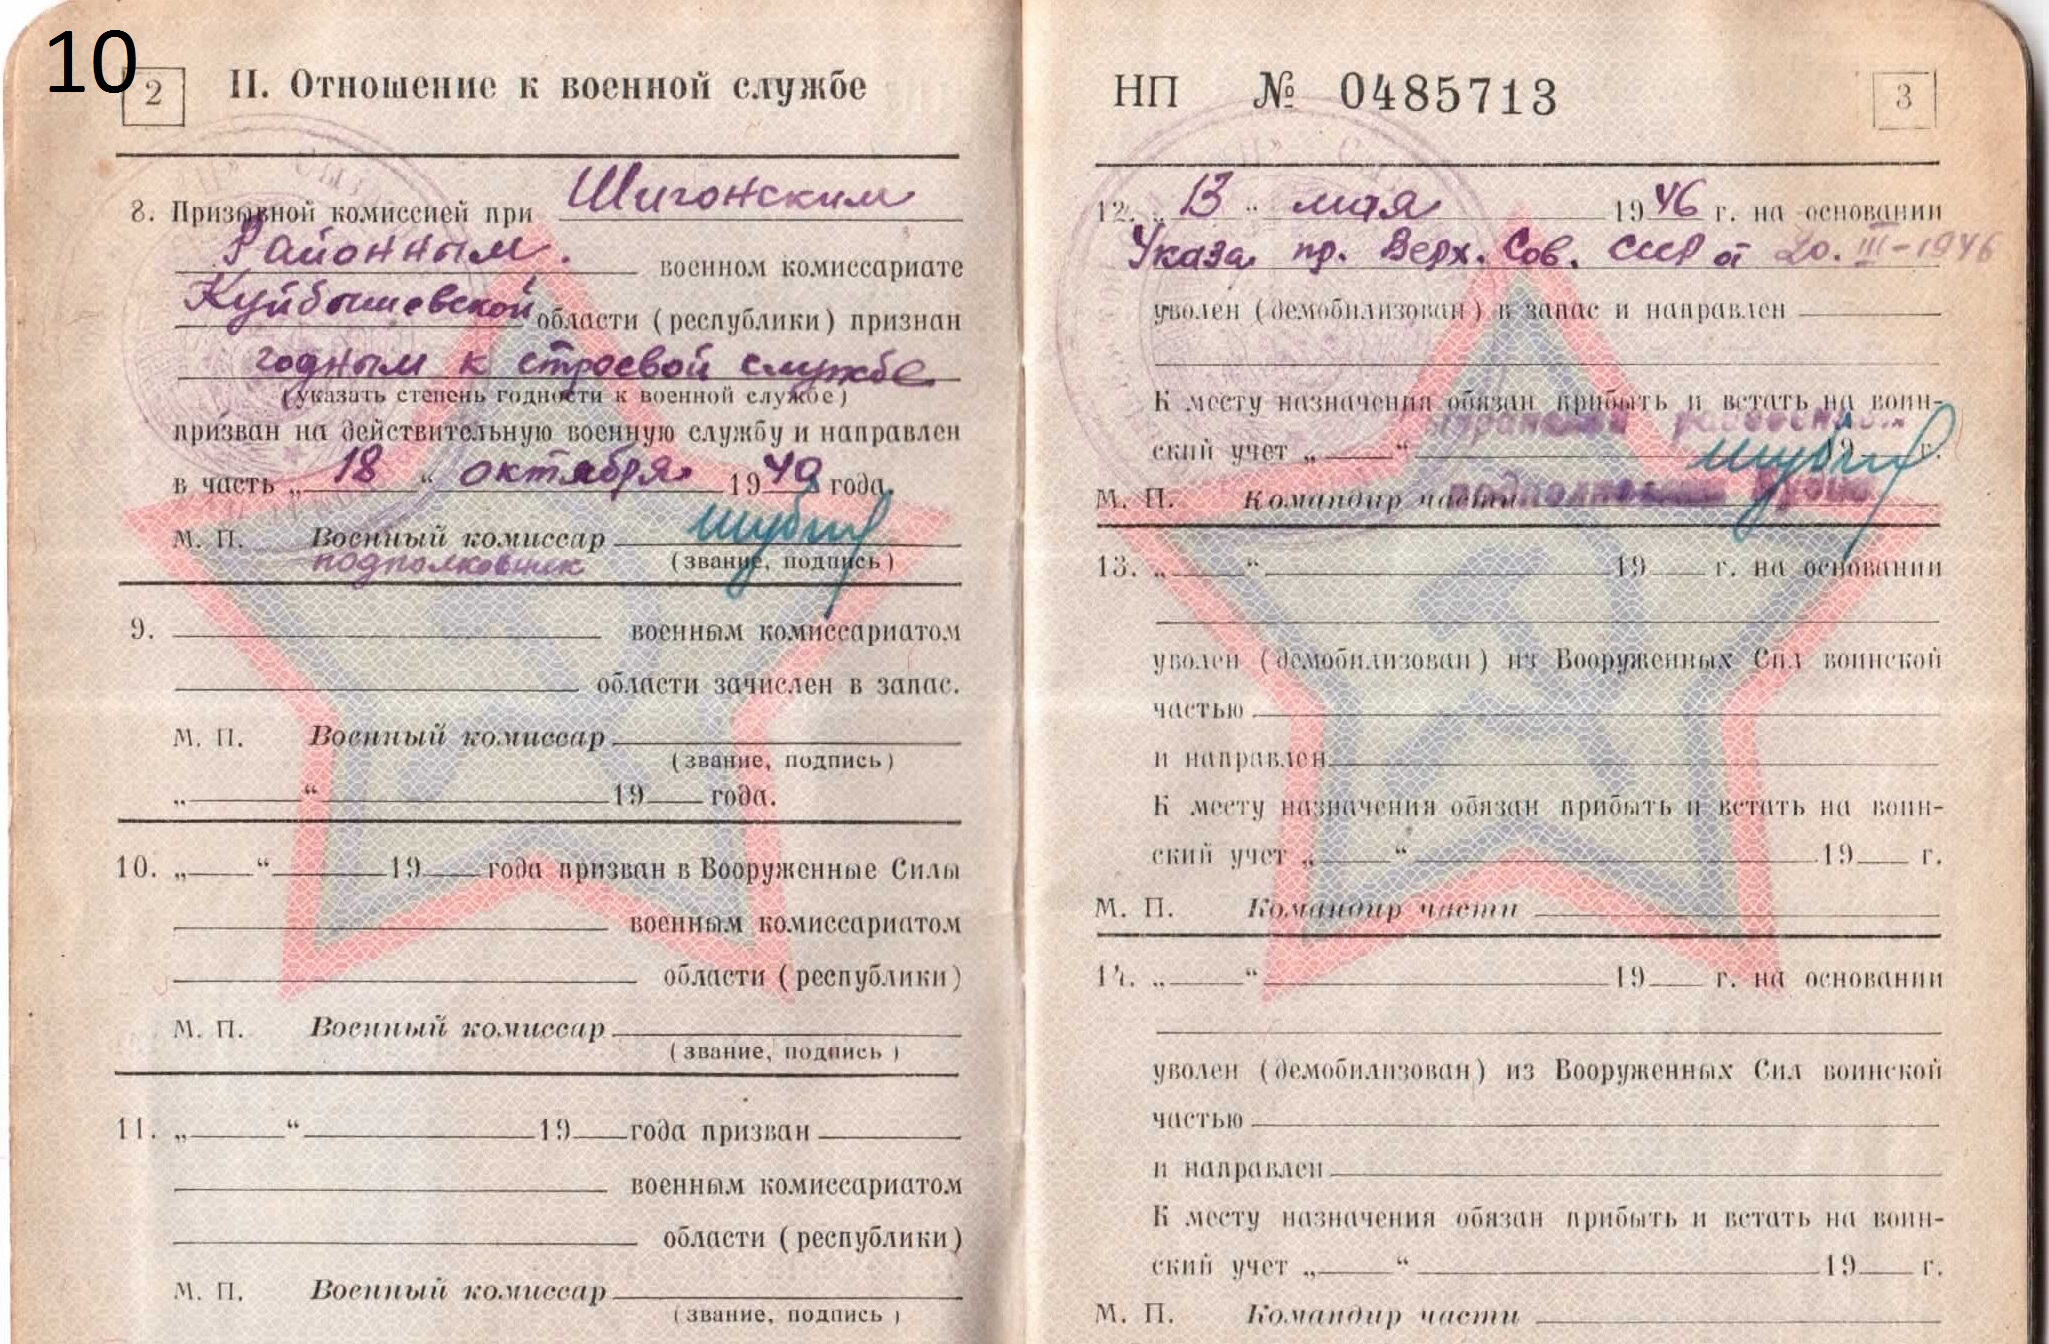 10
2
II. Отношение к военной службе
8. Призывной комиссией при Шигонским
Районным. военном комиссариате
Куйбышевской области (республики) признан
годным к строевой службе
(указать степень годности к военной службе)
призван на действительную военную службу и направлен
в часть „18“ октября 1940 года.
М. П. Военный комиссар
подполковник (звание, подпись)
9. военным комиссариатом
области зачислен в запас.
М. П. Военный комиссар
(звание, подпись)
„ “ 19 года.
10. „ “ 19 года призван в Вооруженные Силы
военным комиссариатом
области (республики)
М. П. Военный комиссар
(звание, подпись)
11. „ “ 19 года призван
военным комиссариатом
области (республики)
М. П. Военный комиссар
(звание, подпись)
НП № 0485713
3
12. „13“ мая 1946 г. на основании
Указа пр. Верх. Сов. СССР от 20. III-1946
уволен (демобилизован) в запас и направлен
К месту назначения обязан прибыть и встать на воин-
ский учет „ “ 19 г.
М. П. Командир части
13. „ “ 19 г. на основании
уволен (демобилизован) из Вооруженных Сил воинской
частью
и направлен
К месту назначения обязан прибыть и встать на воин-
ский учет „ “ 19 г.
М. П. Командир части
14. „ “ 19 г. на основании
уволен (демобилизован) из Вооруженных Сил воинской
частью
и направлен
К месту назначения обязан прибыть и встать на воин-
ский учет „ “ 19 г.
М. П. Командир части